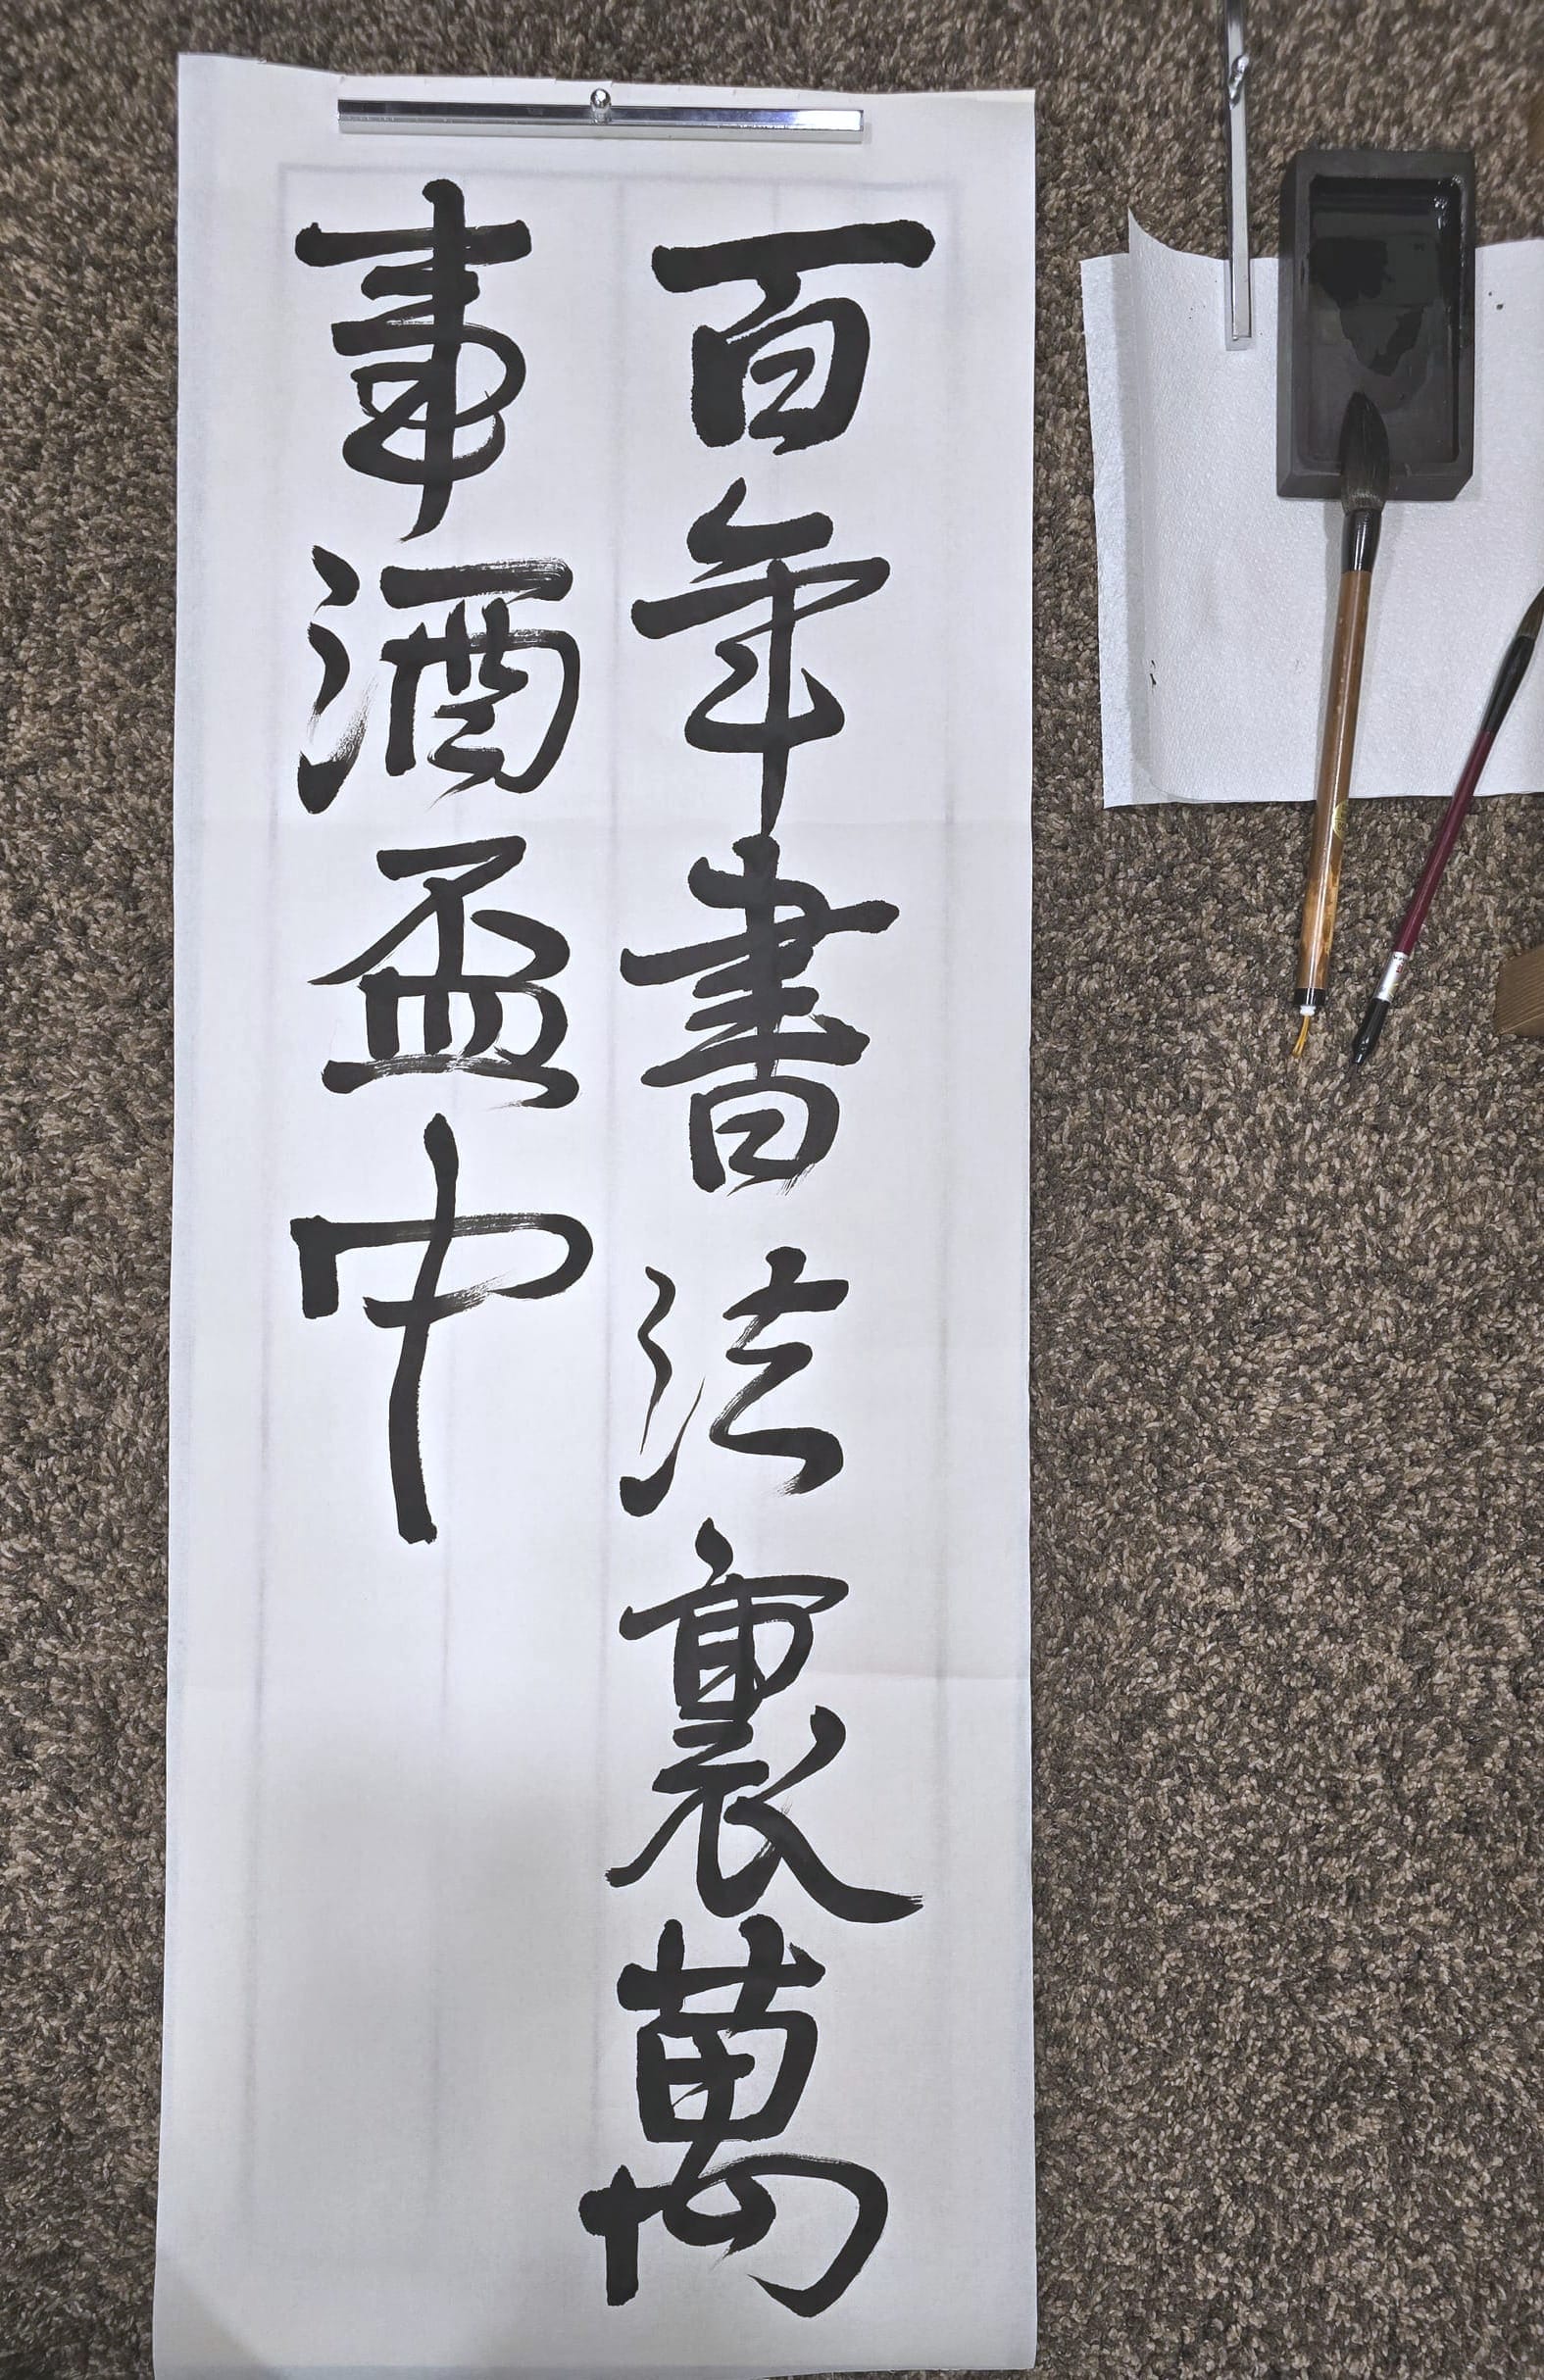 百年書法裏萬
事酒盃中